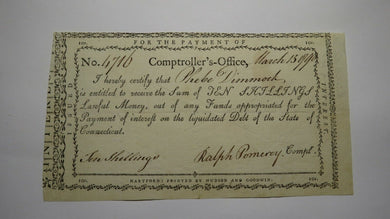 10s. FOR THE PAYMENT OF 10s.
No. 4716 Comptroller's-Office, March 15 179
I hereby certify that Phebe Dimmock
is entitled to receive the Sum of TEN SHILLINGS
Lawful Money, out of any Funds appropriated for the
Payment of interest on the liquidated Debt of the State of
Connecticut.
Ten Shillings Ralph Pomeroy, Compt.
10s. HARTFORD: PRINTED BY HUDSON AND GOODWIN. 10s.